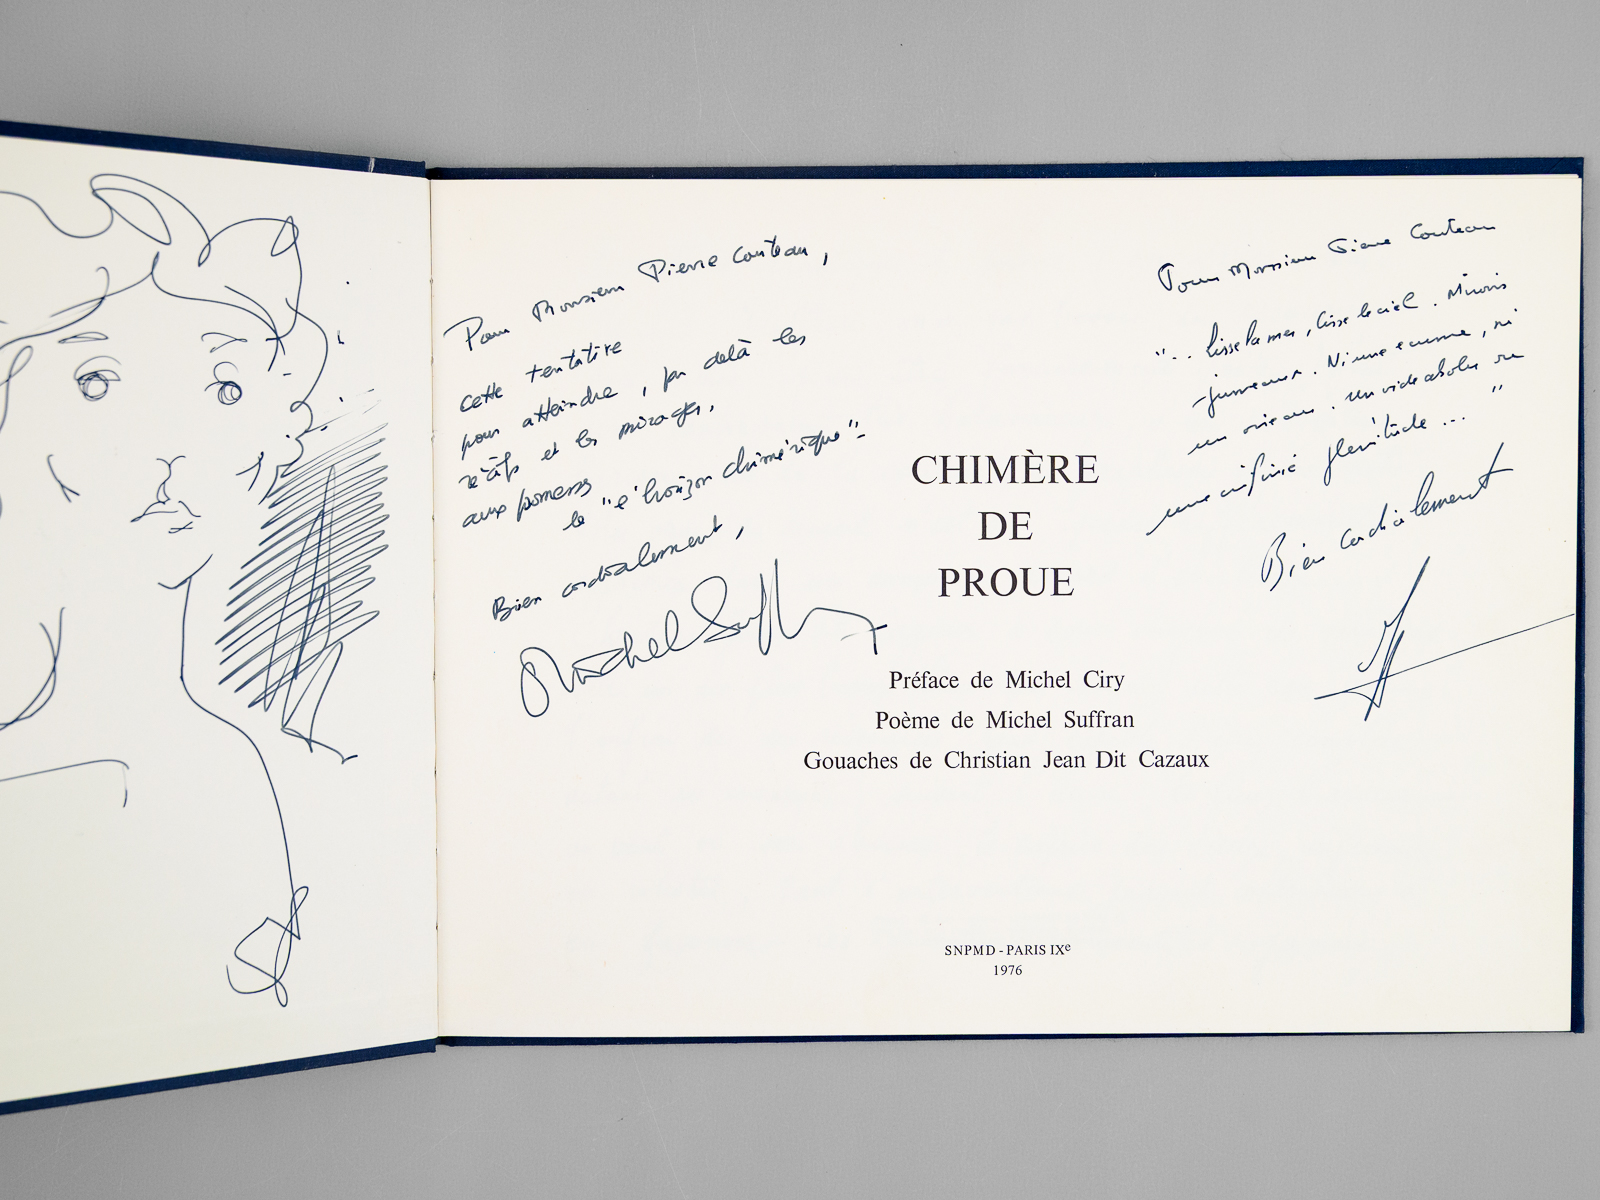 Pour Monsieur Pierre Couteau,
cette tentative
pour atteindre, par delà les
récifs et les mirages,
aux
le "l'horizon chimérique"-
Bien cordialement,
Michel Suffran
CHIMÈRE
DE
PROUE
Préface de Michel Ciry
Poème de Michel Suffran
Gouaches de Christian Jean Dit Cazaux
SNPMD - PARIS IXe
1976
Pour Monsieur Pierre Couteau
".. Lisse la mer, lisse le ciel. Miroirs
jumeaux. Ni une écume, ni
un oiseau. Un vide absolu ou
une infinie plénitude ... "
Bien cordialement